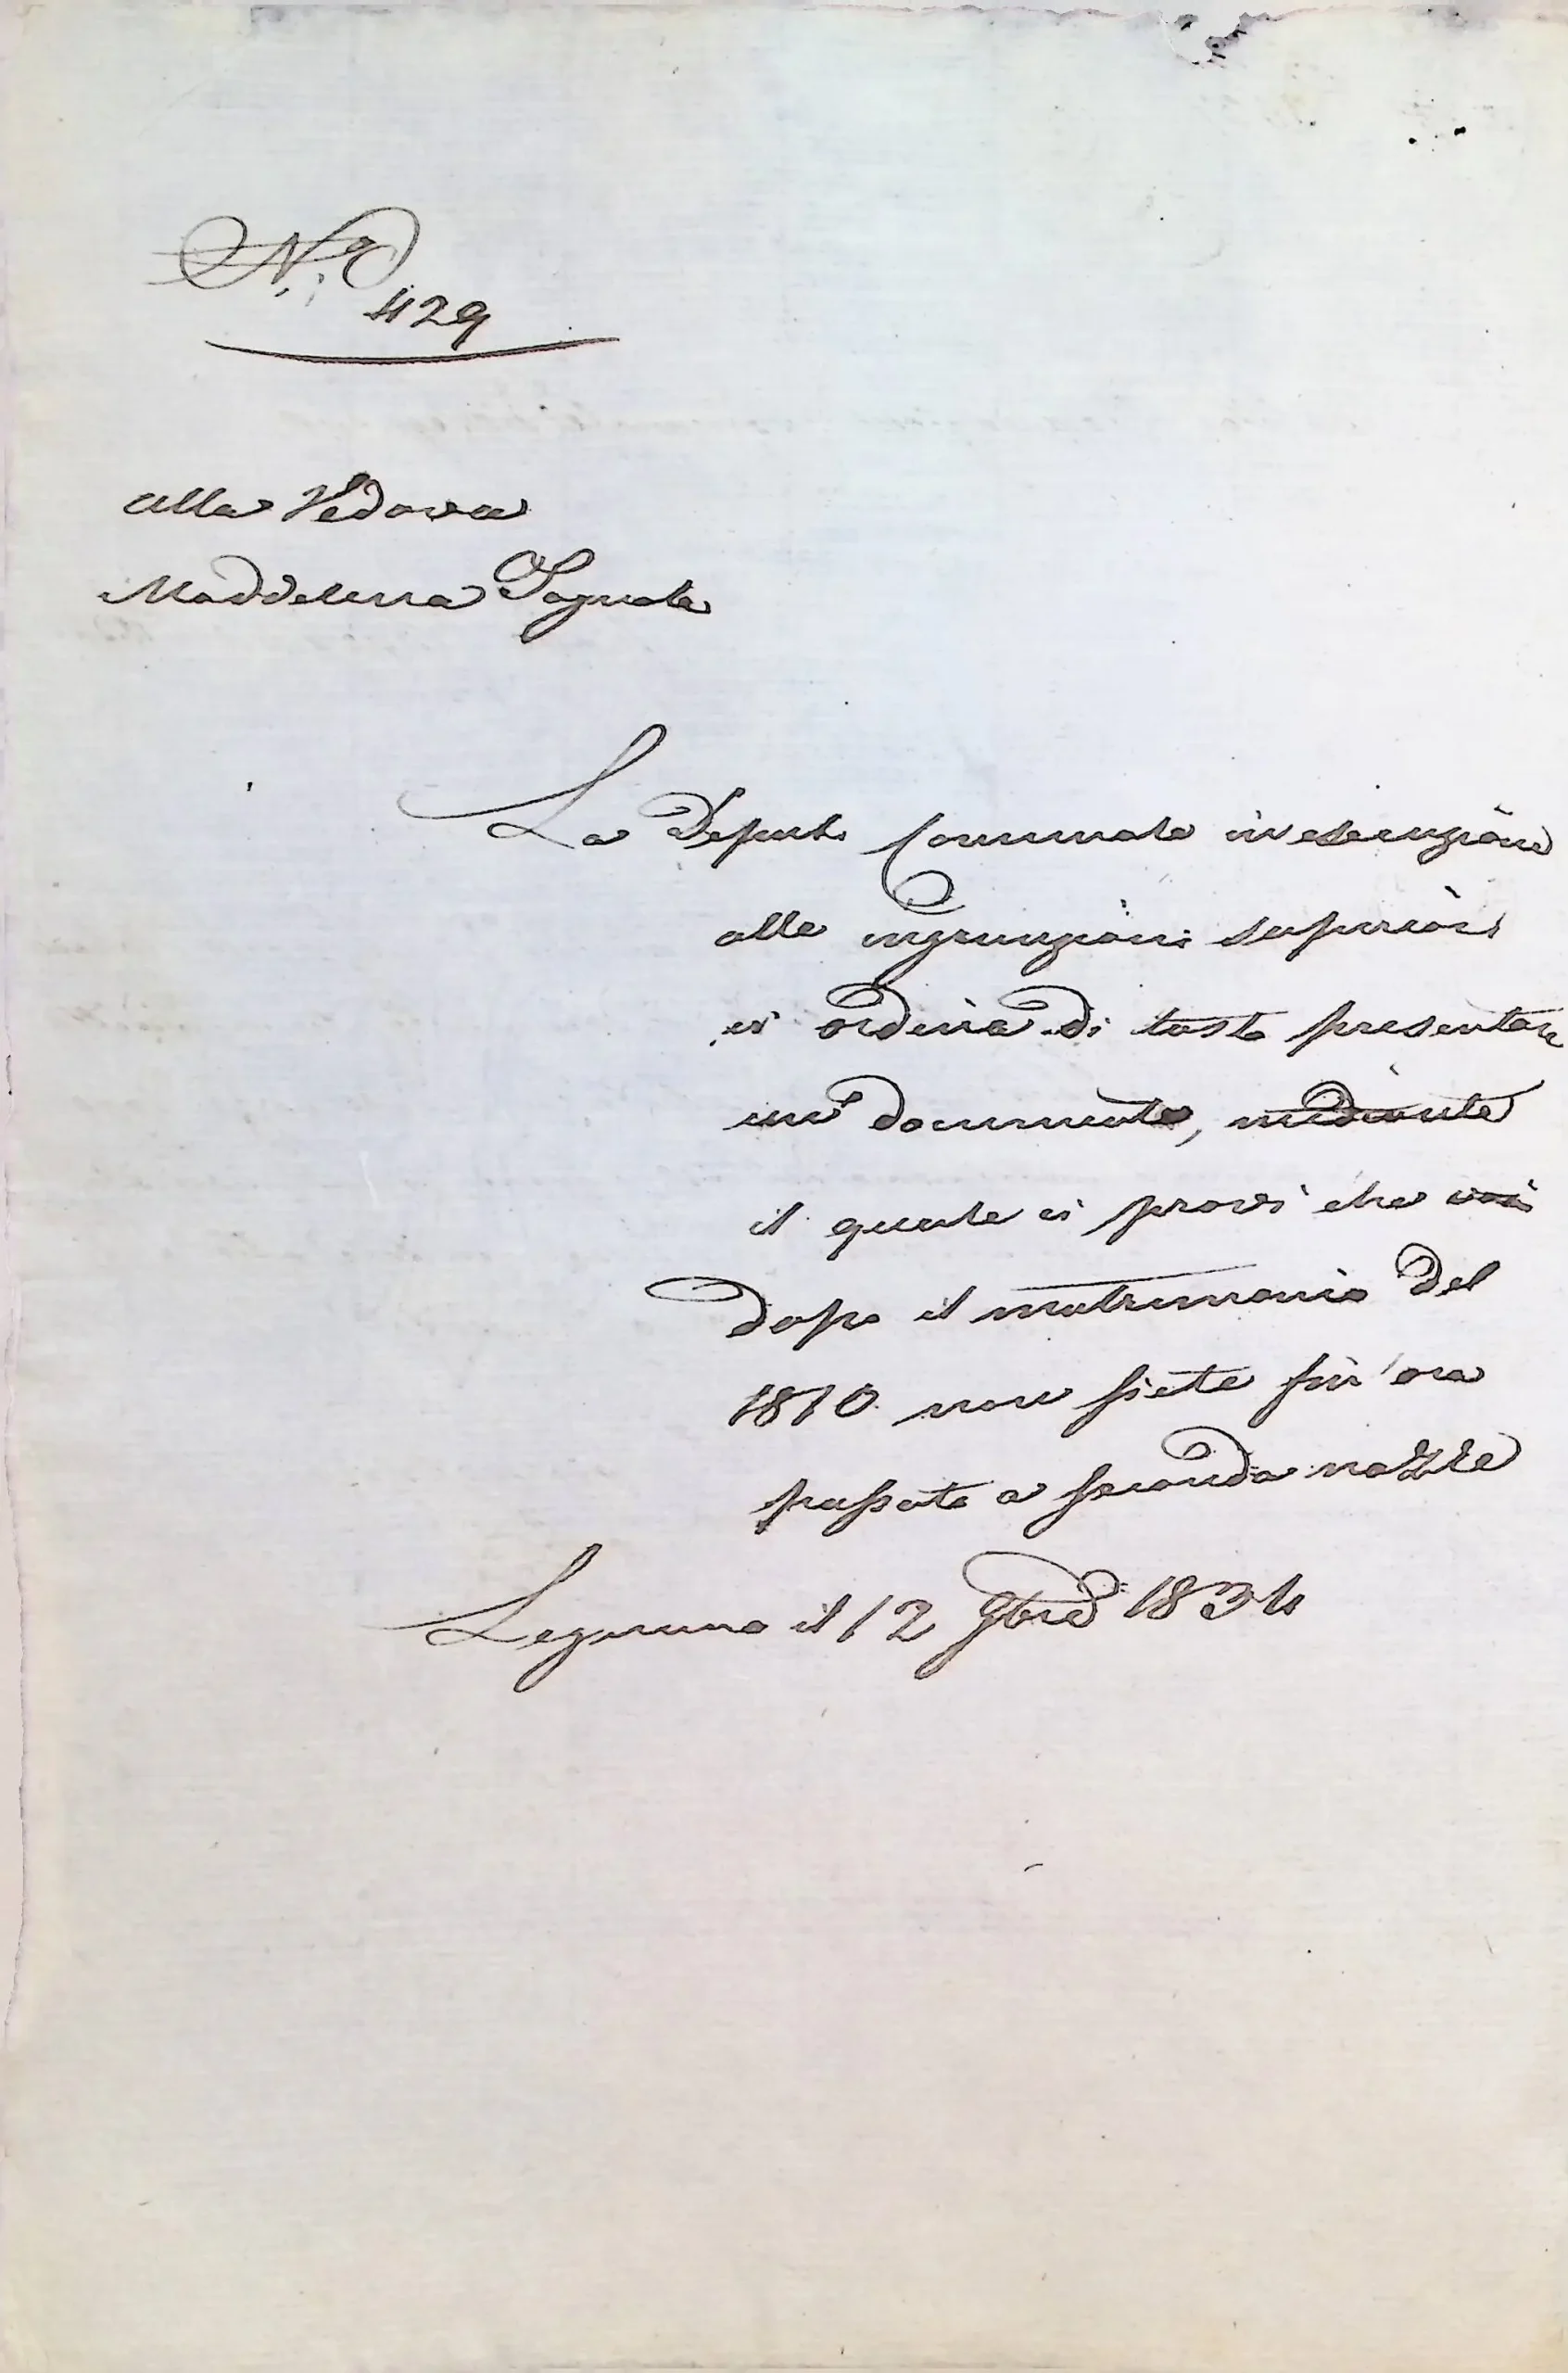 N.º
429
Alla Vedova
Maddalena
La Deput. Comunale in esecuzione
alle ingiunzioni superiori
vi ordina di tosto presentare
un documento, mediante
il quale si provi che voi
dopo il matrimonio del
1810 non siete fin'ora
passata a seconde nozze
il 12 9bre 1834